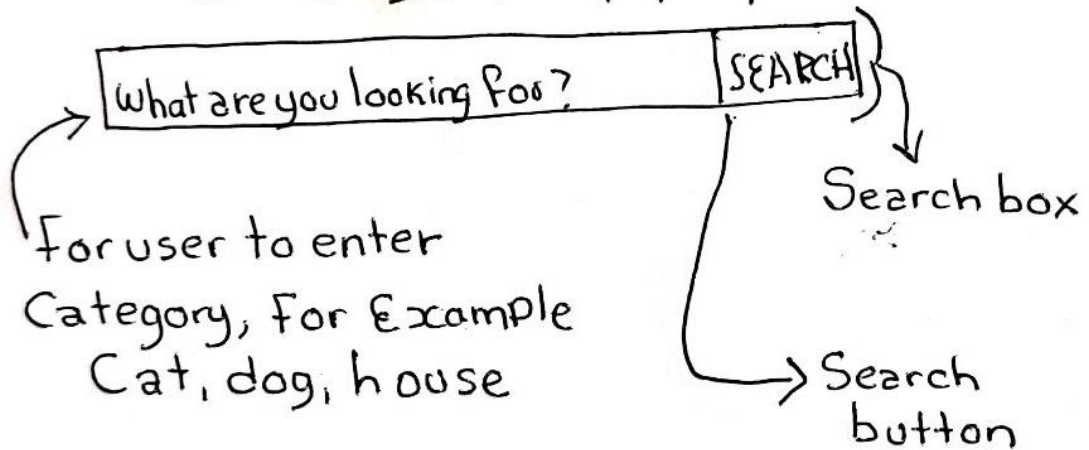 What are you looking foo?
SEARCH
Search box
For user to enter
Category, For Example
Cat, dog, house
Search
button